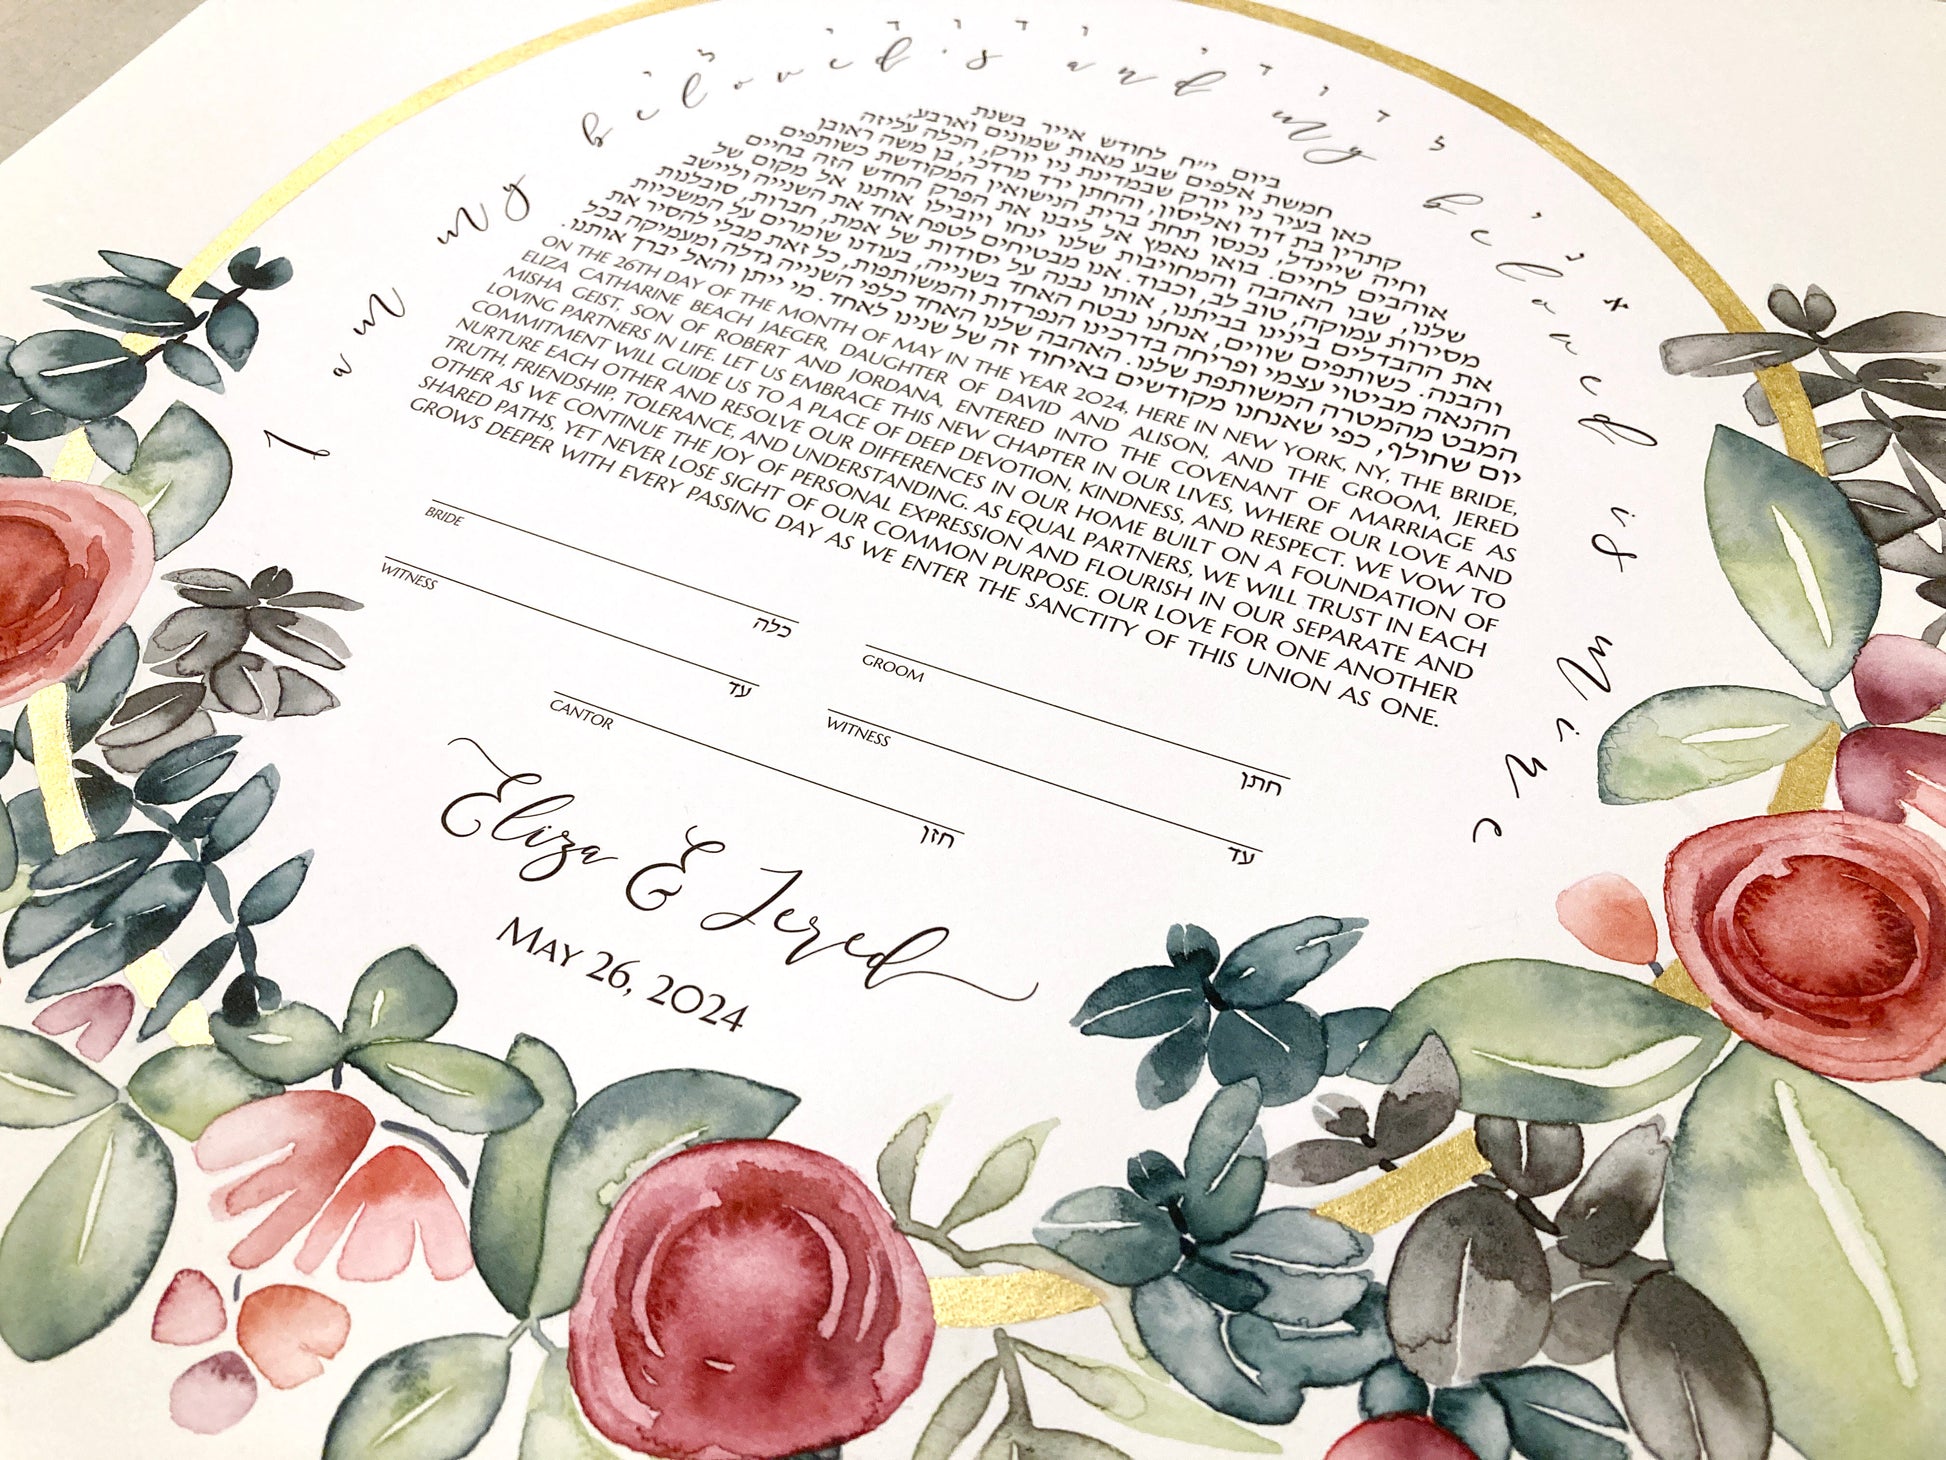 אני לדודי ודודי לי
I am my beloved's and my beloved is mine
ביום י״ח לחודש אייר בשנת
חמשת אלפים שבע מאות שמונים וארבע,
כאן בעיר ניו יורק שבמדינת ניו יורק, הכלה עליזה
קתרין בת דוד ואליסון, והחתן ירד מרדכי, בן משה ראובן
וחיה שיינדל, נכנסו תחת ברית הנישואין המקודשת כשותפים
אוהבים לחיים. בואו נאמץ אל ליבנו את הפרק החדש הזה בחיים
שלנו, שבו האהבה והמחויבות שלנו ינחו ויובילו אותנו אל מקום של
מסירות עמוקה, טוב לב, וכבוד. אנו מבטיחים לטפח אחד את השנייה וליישב
את ההבדלים בינינו בביתנו, אותו נבנה על יסודות של אמת, חברות, סובלנות
והבנה. כשותפים שווים, אנחנו נבטח האחד בשנייה, בעודנו שומרים על המשכיות
ההנאה מביטוי עצמי ופריחה בדרכינו הנפרדות והמשותפות, כל זאת מבלי להסיר את
המבט מהמטרה המשותפת שלנו. האהבה שלנו האחד כלפי השנייה גדלה ומעמיקה בכל
יום שחולף, כפי שאנחנו מקודשים באיחוד זה של שנינו לאחד. מי ייתן והאל יברך אותנו.
ON THE 26TH DAY OF THE MONTH OF MAY IN THE YEAR 2024, HERE IN NEW YORK, NY, THE BRIDE,
ELIZA CATHARINE BEACH JAEGER, DAUGHTER OF DAVID AND ALISON, AND THE GROOM, JERED
MISHA GEIST, SON OF ROBERT AND JORDANA, ENTERED INTO THE COVENANT OF MARRIAGE AS
LOVING PARTNERS IN LIFE. LET US EMBRACE THIS NEW CHAPTER IN OUR LIVES, WHERE OUR LOVE AND
COMMITMENT WILL GUIDE US TO A PLACE OF DEEP DEVOTION, KINDNESS, AND RESPECT. WE VOW TO
NURTURE EACH OTHER AND RESOLVE OUR DIFFERENCES IN OUR HOME BUILT ON A FOUNDATION OF
TRUTH, FRIENDSHIP, TOLERANCE, AND UNDERSTANDING. AS EQUAL PARTNERS, WE WILL TRUST IN EACH
OTHER AS WE CONTINUE THE JOY OF PERSONAL EXPRESSION AND FLOURISH IN OUR SEPARATE AND
SHARED PATHS, YET NEVER LOSE SIGHT OF OUR COMMON PURPOSE. OUR LOVE FOR ONE ANOTHER
GROWS DEEPER WITH EVERY PASSING DAY AS WE ENTER THE SANCTITY OF THIS UNION AS ONE.
BRIDE כלה
GROOM חתן
WITNESS עד
WITNESS עד
CANTOR חזן
Eliza & Jered
MAY 26, 2024